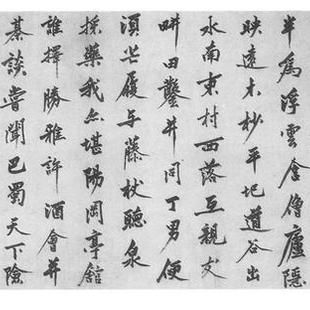 半為浮雲含僧廬隱
映遠木杪平地道谷出
水南東村西落互親友
畊田鑿井同丁男便
須芒屨与藤杖聽泉
採藥我亦堪陽岡亭館
誰擇勝雅許酒會并
棊談嘗聞巴蜀天下險